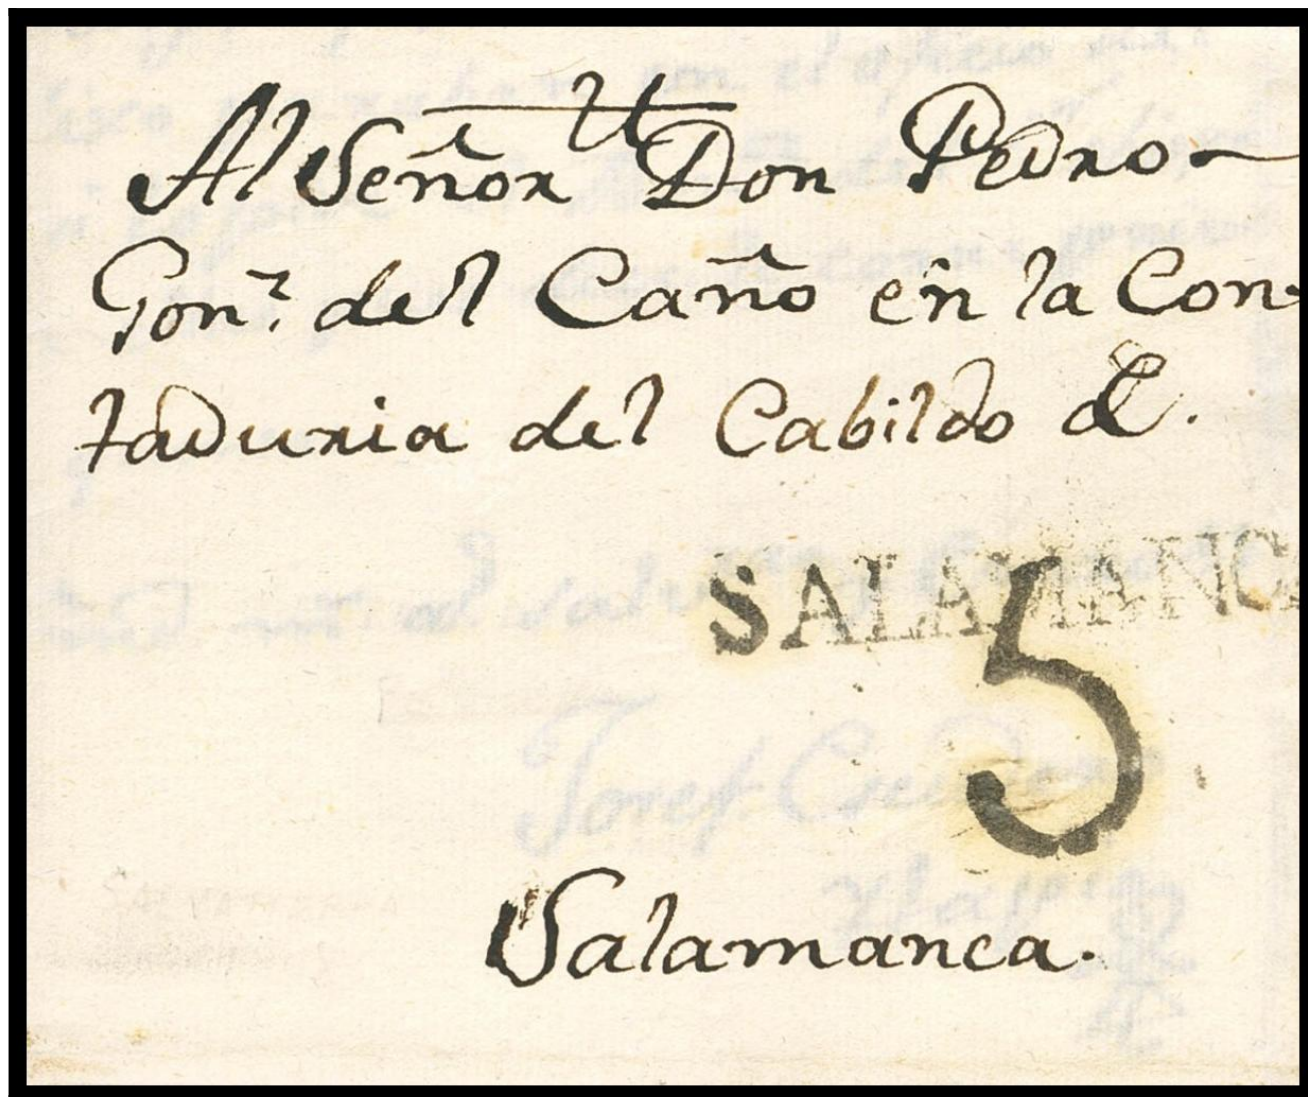 Al Señor Dn Don Pedro
Gonz. del Caño en la Con-
taduria del Cabildo &.
SALAMANCA
5
Salamanca.